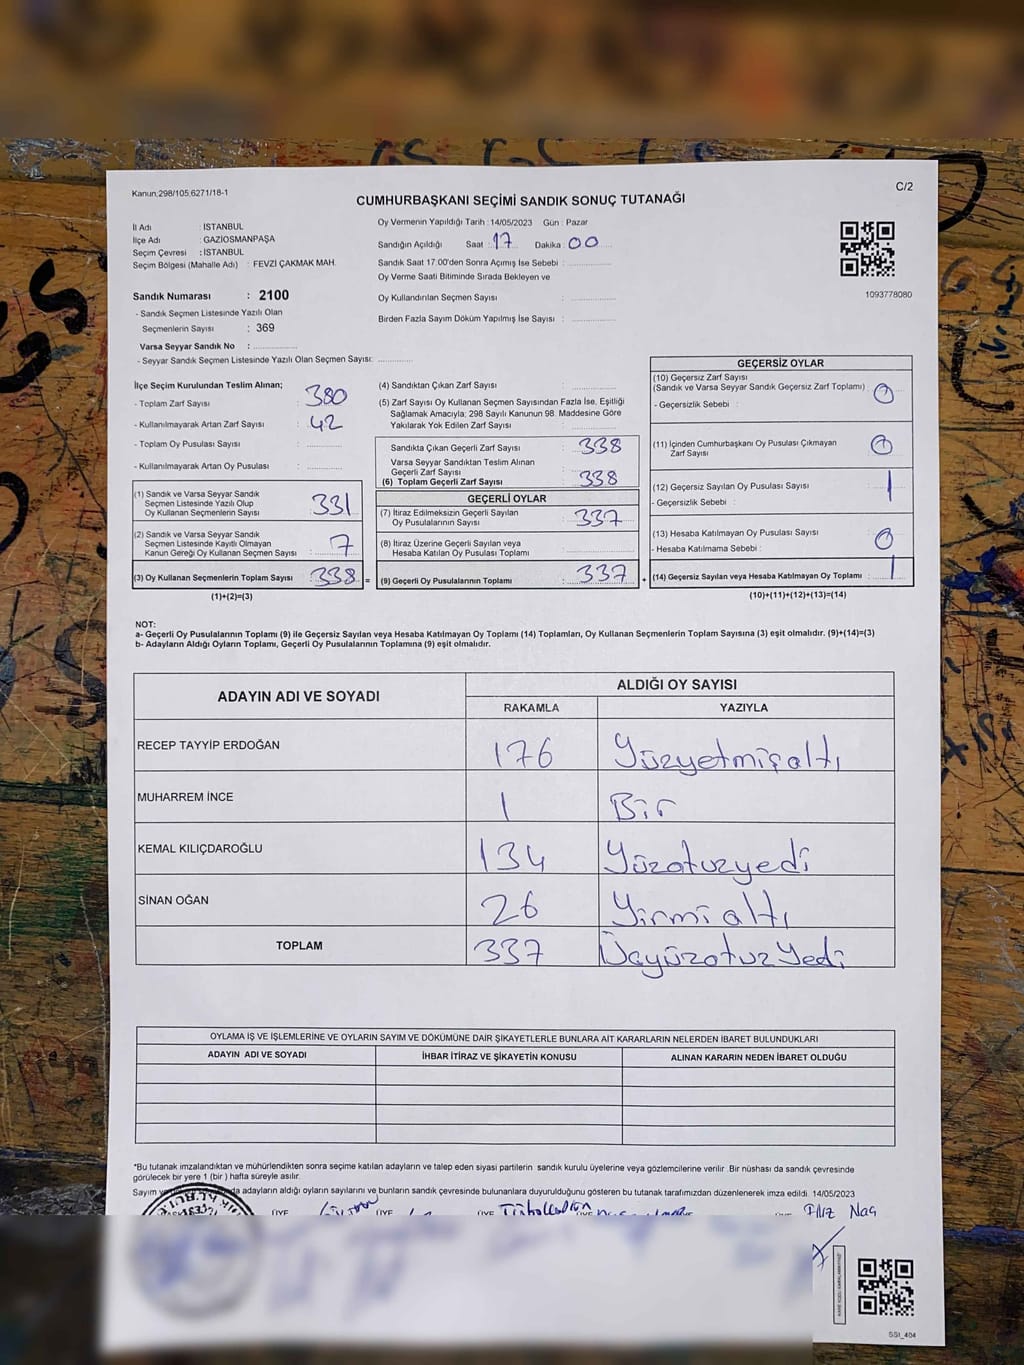 Kanun;298/105,6271/18-1
C/2
CUMHURBAŞKANI SEÇİMİ SANDIK SONUÇ TUTANAĞI
İl Adı : İSTANBUL
İlçe Adı : GAZİOSMANPAŞA
Seçim Çevresi : İSTANBUL
Seçim Bölgesi (Mahalle Adı) : FEVZİ ÇAKMAK MAH.
Oy Vermenin Yapıldığı Tarih : 14/05/2023 Gün : Pazar
Sandığın Açıldığı Saat : 17 Dakika : 00
Sandık Saat 17.00'den Sonra Açımış İse Sebebi :
Oy Verme Saati Bitiminde Sırada Bekleyen ve
Oy Kullandırılan Seçmen Sayısı :
Birden Fazla Sayım Döküm Yapılmış İse Sayısı :
1093778080
Sandık Numarası : 2100
- Sandık Seçmen Listesinde Yazılı Olan
Seçmenlerin Sayısı : 369
Varsa Seyyar Sandık No :
- Seyyar Sandık Seçmen Listesinde Yazılı Olan Seçmen Sayısı:
İlçe Seçim Kurulundan Teslim Alınan;
- Toplam Zarf Sayısı : 380
- Kullanılmayarak Artan Zarf Sayısı : 42
- Toplam Oy Pusulası Sayısı :
- Kullanılmayarak Artan Oy Pusulası :
(1) Sandık ve Varsa Seyyar Sandık
Seçmen Listesinde Yazılı Olup
Oy Kullanan Seçmenlerin Sayısı : 331
(2) Sandık ve Varsa Seyyar Sandık
Seçmen Listesinde Kayıtlı Olmayan
Kanun Gereği Oy Kullanan Seçmen Sayısı : 7
(3) Oy Kullanan Seçmenlerin Toplam Sayısı : 338 =
(1)+(2)=(3)
(4) Sandıktan Çıkan Zarf Sayısı :
(5) Zarf Sayısı Oy Kullanan Seçmen Sayısından Fazla İse, Eşitliği
Sağlamak Amacıyla; 298 Sayılı Kanunun 98. Maddesine Göre
Yakılarak Yok Edilen Zarf Sayısı :
Sandıkta Çıkan Geçerli Zarf Sayısı : 338
Varsa Seyyar Sandıktan Teslim Alınan
Geçerli Zarf Sayısı
(6) Toplam Geçerli Zarf Sayısı : 338
GEÇERLİ OYLAR
(7) İtiraz Edilmeksizin Geçerli Sayılan
Oy Pusulalarının Sayısı : 337
(8) İtiraz Üzerine Geçerli Sayılan veya
Hesaba Katılan Oy Pusulası Toplamı :
(9) Geçerli Oy Pusulalarının Toplamı : 337 +
GEÇERSİZ OYLAR
(10) Geçersiz Zarf Sayısı
(Sandık ve Varsa Seyyar Sandık Geçersiz Zarf Toplamı) : 0
- Geçersizlik Sebebi :
(11) İçinden Cumhurbaşkanı Oy Pusulası Çıkmayan
Zarf Sayısı : 0
(12) Geçersiz Sayılan Oy Pusulası Sayısı : 1
- Geçersizlik Sebebi :
(13) Hesaba Katılmayan Oy Pusulası Sayısı : 0
- Hesaba Katılmama Sebebi :
(14) Geçersiz Sayılan veya Hesaba Katılmayan Oy Toplamı : 1
(10)+(11)+(12)+(13)=(14)
NOT:
a- Geçerli Oy Pusulalarının Toplamı (9) ile Geçersiz Sayılan veya Hesaba Katılmayan Oy Toplamı (14) Toplamları, Oy Kullanan Seçmenlerin Toplam Sayısına (3) eşit olmalıdır. (9)+(14)=(3)
b- Adayların Aldığı Oyların Toplamı, Geçerli Oy Pusulalarının Toplamına (9) eşit olmalıdır.
ADAYIN ADI VE SOYADI
ALDIĞI OY SAYISI
RAKAMLA YAZIYLA
RECEP TAYYİP ERDOĞAN 176 Yüzyetmişaltı
MUHARREM İNCE 1 Bir
KEMAL KILIÇDAROĞLU 134 Yüzotuzyedi
SİNAN OĞAN 26 Yirmialtı
TOPLAM 337 ÜçyüzotuzYedi
OYLAMA İŞ VE İŞLEMLERİNE VE OYLARIN SAYIM VE DÖKÜMÜNE DAİR ŞİKAYETLERLE BUNLARA AİT KARARLARIN NELERDEN İBARET BULUNDUKLARI
ADAYIN ADI VE SOYADI İHBAR İTİRAZ VE ŞİKAYETİN KONUSU ALINAN KARARIN NEDEN İBARET OLDUĞU
*Bu tutanak imzalandıktan ve mühürlendikten sonra seçime katılan adayların ve talep eden siyasi partilerin sandık kurulu üyelerine veya gözlemcilerine verilir. Bir nüshası da sandık çevresinde
görülecek bir yere 1 (bir ) hafta süreyle asılır.
Sayım adayların aldığı oyların sayılarını ve bunların sandık çevresinde bulunanlara duyurulduğunu gösteren bu tutanak tarafımızdan düzenlenerek imza edildi. 14/05/2023
ÜYE ÜYE ÜYE
SS1_404